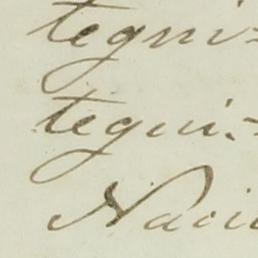 tegni=
tegni=
Naci